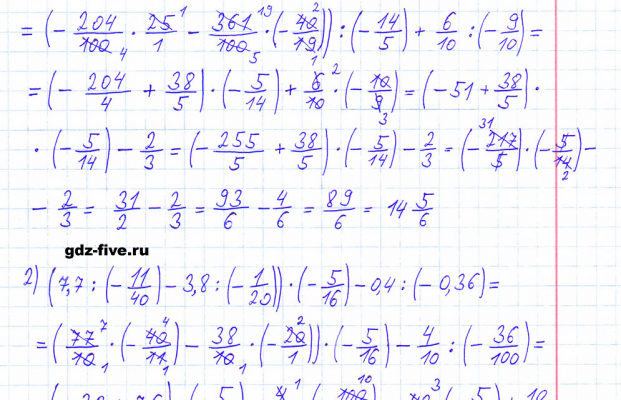 = (- 204/100 · 25/1 - 361/100 · (- 40/19)) : (- 14/5) + 6/10 : (- 9/10) =
= (- 204/4 + 38/5) · (- 5/14) + 6/10 · (- 10/9) = (- 51 + 38/5) ·
· (- 5/14) - 2/3 = (- 255/5 + 38/5) · (- 5/14) - 2/3 = (- 217/5) · (- 5/14) -
- 2/3 = 31/2 - 2/3 = 93/6 - 4/6 = 89/6 = 14 5/6
gdz-five.ru
2) (7,7 : (- 11/40) - 3,8 : (- 1/20)) · (- 5/16) - 0,4 : (- 0,36) =
= (77/10 · (- 40/11) - 38/10 · (- 20/1)) · (- 5/16) - 4/10 : (- 36/100) =